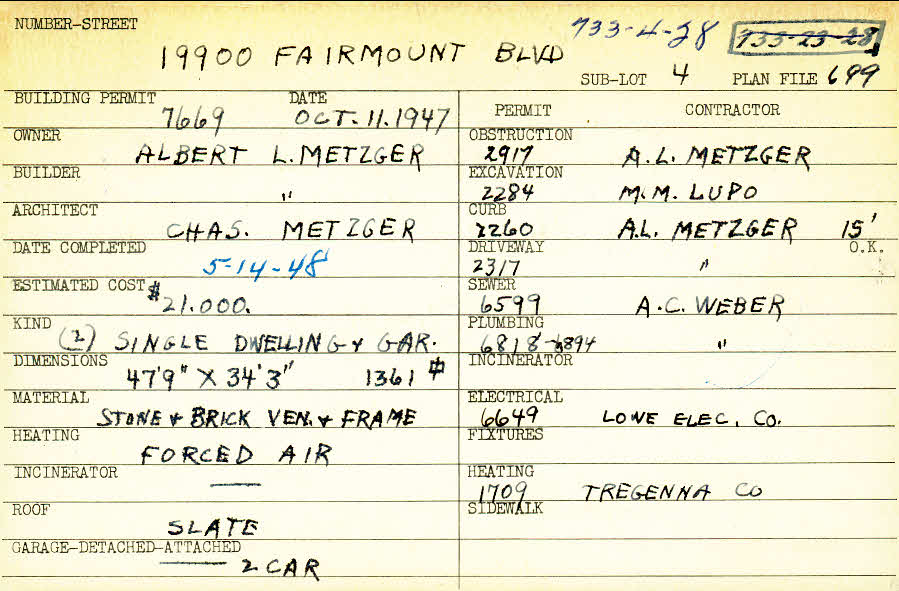 NUMBER-STREET
733-4-28 733-23-28
19900 FAIRMOUNT BLVD
SUB-LOT 4 PLAN FILE 699
BUILDING PERMIT DATE
7669 OCT. 11. 1947
OWNER
ALBERT L. METZGER
BUILDER
"
ARCHITECT
CHAS. METZGER
DATE COMPLETED
5-14-48
ESTIMATED COST
$21.000.
KIND
(2) SINGLE DWELLING & GAR.
DIMENSIONS
47'9" X 34'3" 1361 #
MATERIAL
STONE & BRICK VEN. & FRAME
HEATING
FORCED AIR
INCINERATOR
—
ROOF
SLATE
GARAGE-DETACHED-ATTACHED
2 CAR
PERMIT CONTRACTOR
OBSTRUCTION
2917 A.L. METZGER
EXCAVATION
2284 M.M. LUPO
CURB
2260 A.L. METZGER 15'
DRIVEWAY O.K.
2317 "
SEWER
6599 A.C. WEBER
PLUMBING
6818-6894 "
INCINERATOR
ELECTRICAL
6649 LOWE ELEC. CO.
FIXTURES
HEATING
1709 TREGENNA CO
SIDEWALK